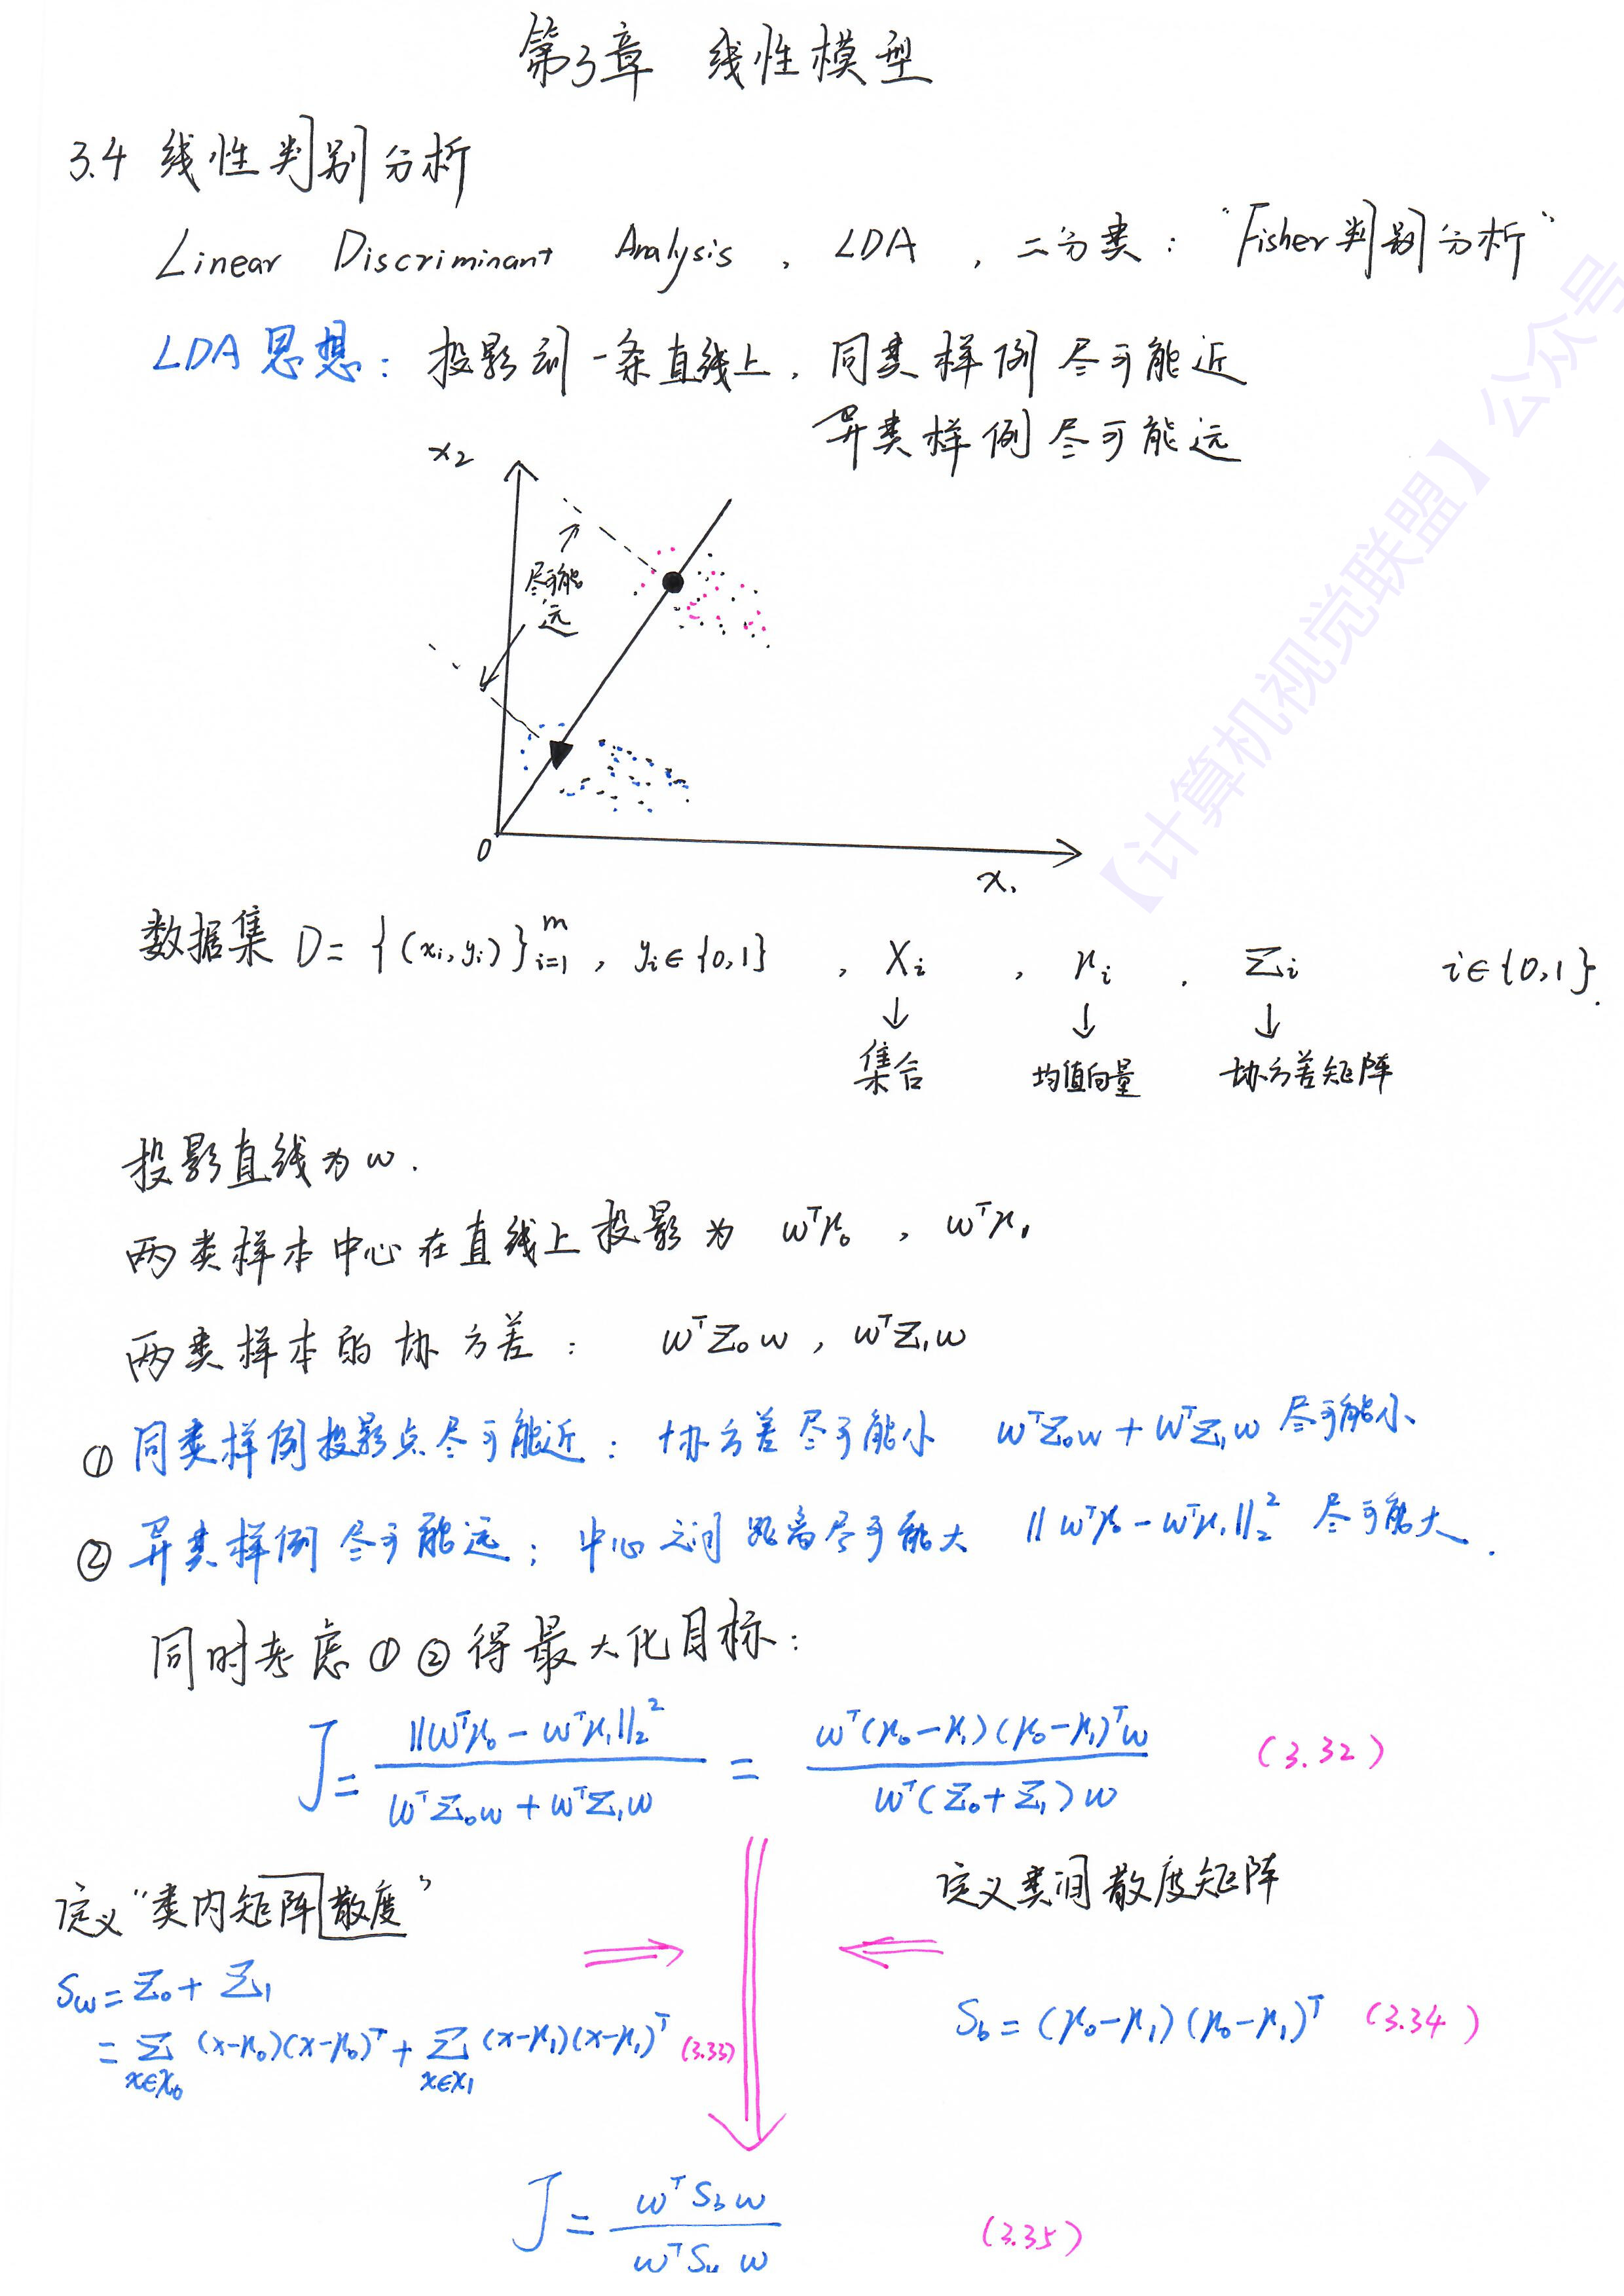 第3章 线性模型
3.4 线性判别分析
Linear Discriminant Analysis , LDA , 二分类: "Fisher判别分析"
LDA思想: 投影到一条直线上, 同类样例尽可能近
异类样例尽可能远
x₂
尽可能
远
0
x₁
数据集 D = {(xᵢ, yᵢ)}ᵢ₌₁ᵐ , yᵢ∈{0,1} , Xᵢ , μᵢ , Σᵢ i∈{0,1}.
↓ ↓ ↓
集合 均值向量 协方差矩阵
投影直线为 w.
两类样本中心在直线上投影为 wᵀμ₀ , wᵀμ₁
两类样本的协方差: wᵀΣ₀w , wᵀΣ₁w
① 同类样例投影点尽可能近: 协方差尽可能小 wᵀΣ₀w + wᵀΣ₁w 尽可能小
② 异类样例尽可能远; 中心之间距离尽可能大 ‖wᵀμ₀ - wᵀμ₁‖₂² 尽可能大.
同时考虑①②得最大化目标:
J = ‖wᵀμ₀ - wᵀμ₁‖₂² / (wᵀΣ₀w + wᵀΣ₁w) = wᵀ(μ₀-μ₁)(μ₀-μ₁)ᵀw / wᵀ(Σ₀+Σ₁)w (3.32)
定义"类内矩阵散度"
定义类间散度矩阵
S_w = Σ₀ + Σ₁
= Σ_{x∈X₀} (x-μ₀)(x-μ₀)ᵀ + Σ_{x∈X₁} (x-μ₁)(x-μ₁)ᵀ (3.33)
S_b = (μ₀-μ₁)(μ₀-μ₁)ᵀ (3.34)
J = wᵀS_b w / wᵀS_w w (3.35)
【计算机视觉联盟】公众号